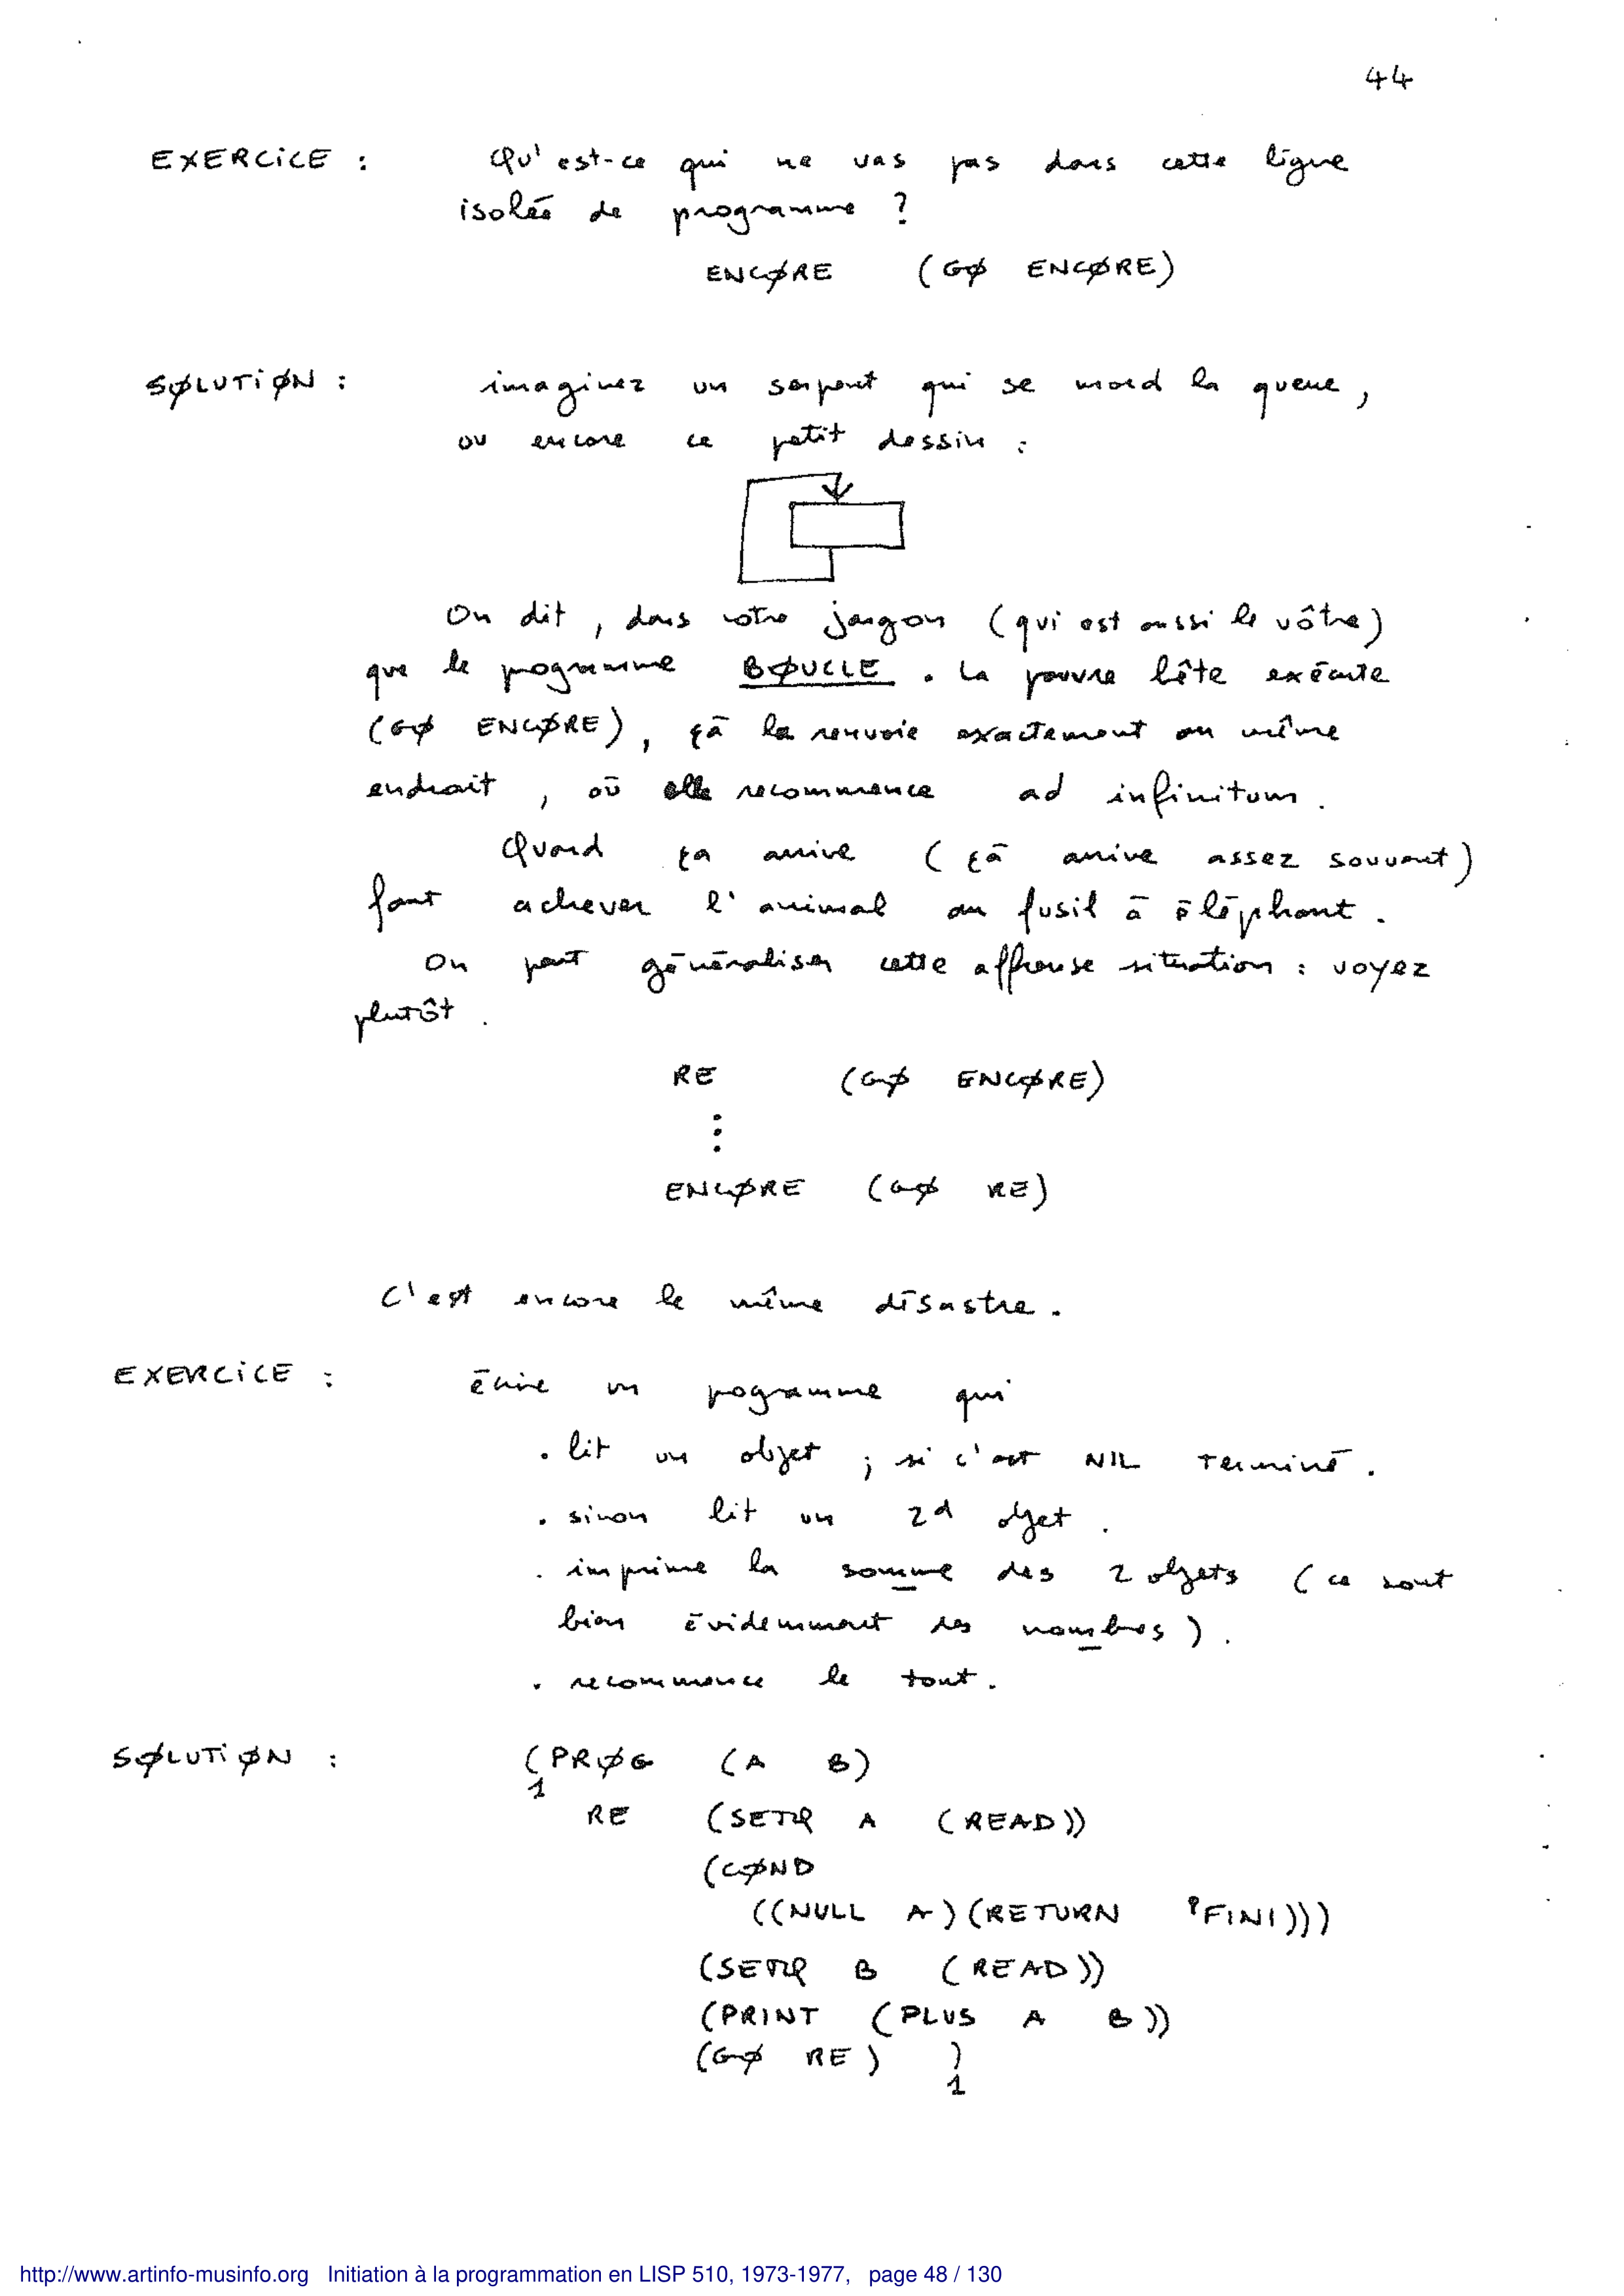 44
EXERCiCE : Qu'est-ce qui ne vas pas dans cette ligne
isolée de programme ?
ENCØRE (GØ ENCØRE)
SØLUTiØN : imaginez un serpent qui se mord la queue,
ou encore ce petit dessin :
On dit, dans notre jargon (qui est aussi le vôtre)
que le programme BØUCLE. La pauvre bête exécute
(GØ ENCØRE), çà la renvoie exactement au même
endroit, où elle recommence ad infinitum.
Quand ça arrive (çà arrive assez souvent)
faut achever l'animal au fusil à éléphant.
On peut généraliser cette affreuse situation : voyez
plutôt.
RE (GØ ENCØRE)
⋮
ENCØRE (GØ RE)
C'est encore le même désastre.
EXERCiCE : écrire un pogramme qui
. lit un objet ; si c'est NIL terminé.
. sinon lit un 2d objet.
. imprime la somme des 2 objets (ce sont
bien évidemment des nombres).
. recommence le tout.
SØLUTiØN : (PRØG (A B)
1
RE (SETQ A (READ))
(CØND
((NULL A)(RETURN 'FINI)))
(SETQ B (READ))
(PRINT (PLUS A B))
(GØ RE) )
1
http://www.artinfo-musinfo.org Initiation à la programmation en LISP 510, 1973-1977, page 48 / 130